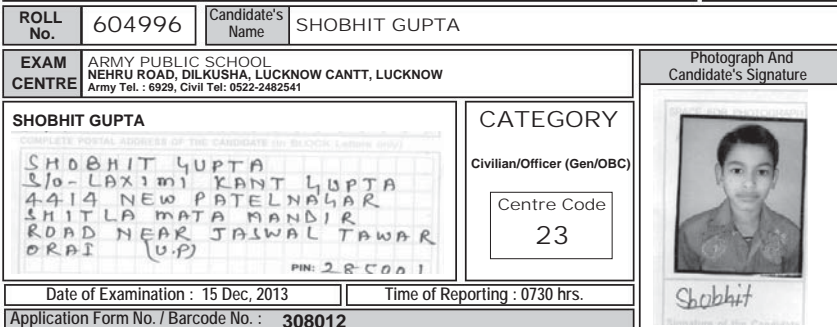 ROLL No. 604996 Candidate's Name SHOBHIT GUPTA
EXAM CENTRE
ARMY PUBLIC SCHOOL
NEHRU ROAD, DILKUSHA, LUCKNOW CANTT, LUCKNOW
Army Tel. : 6929, Civil Tel: 0522-2482541
Photograph And
Candidate's Signature
SHOBHIT GUPTA
COMPLETE POSTAL ADDRESS OF THE CANDIDATE (in BLOCK Letters only)
SHOBHIT GUPTA
S/o- LAXIMI KANT GUPTA
4414 NEW PATELNAGAR
SHITLA MATA MANDIR
ROAD NEAR JASWAL TAWAR
ORAI (U.P)
PIN: 285001
CATEGORY
Civilian/Officer (Gen/OBC)
Centre Code
23
SPACE FOR PHOTOGRAPH
Shobhit
Signature of the Candidate
Date of Examination : 15 Dec, 2013 Time of Reporting : 0730 hrs.
Application Form No. / Barcode No. : 308012